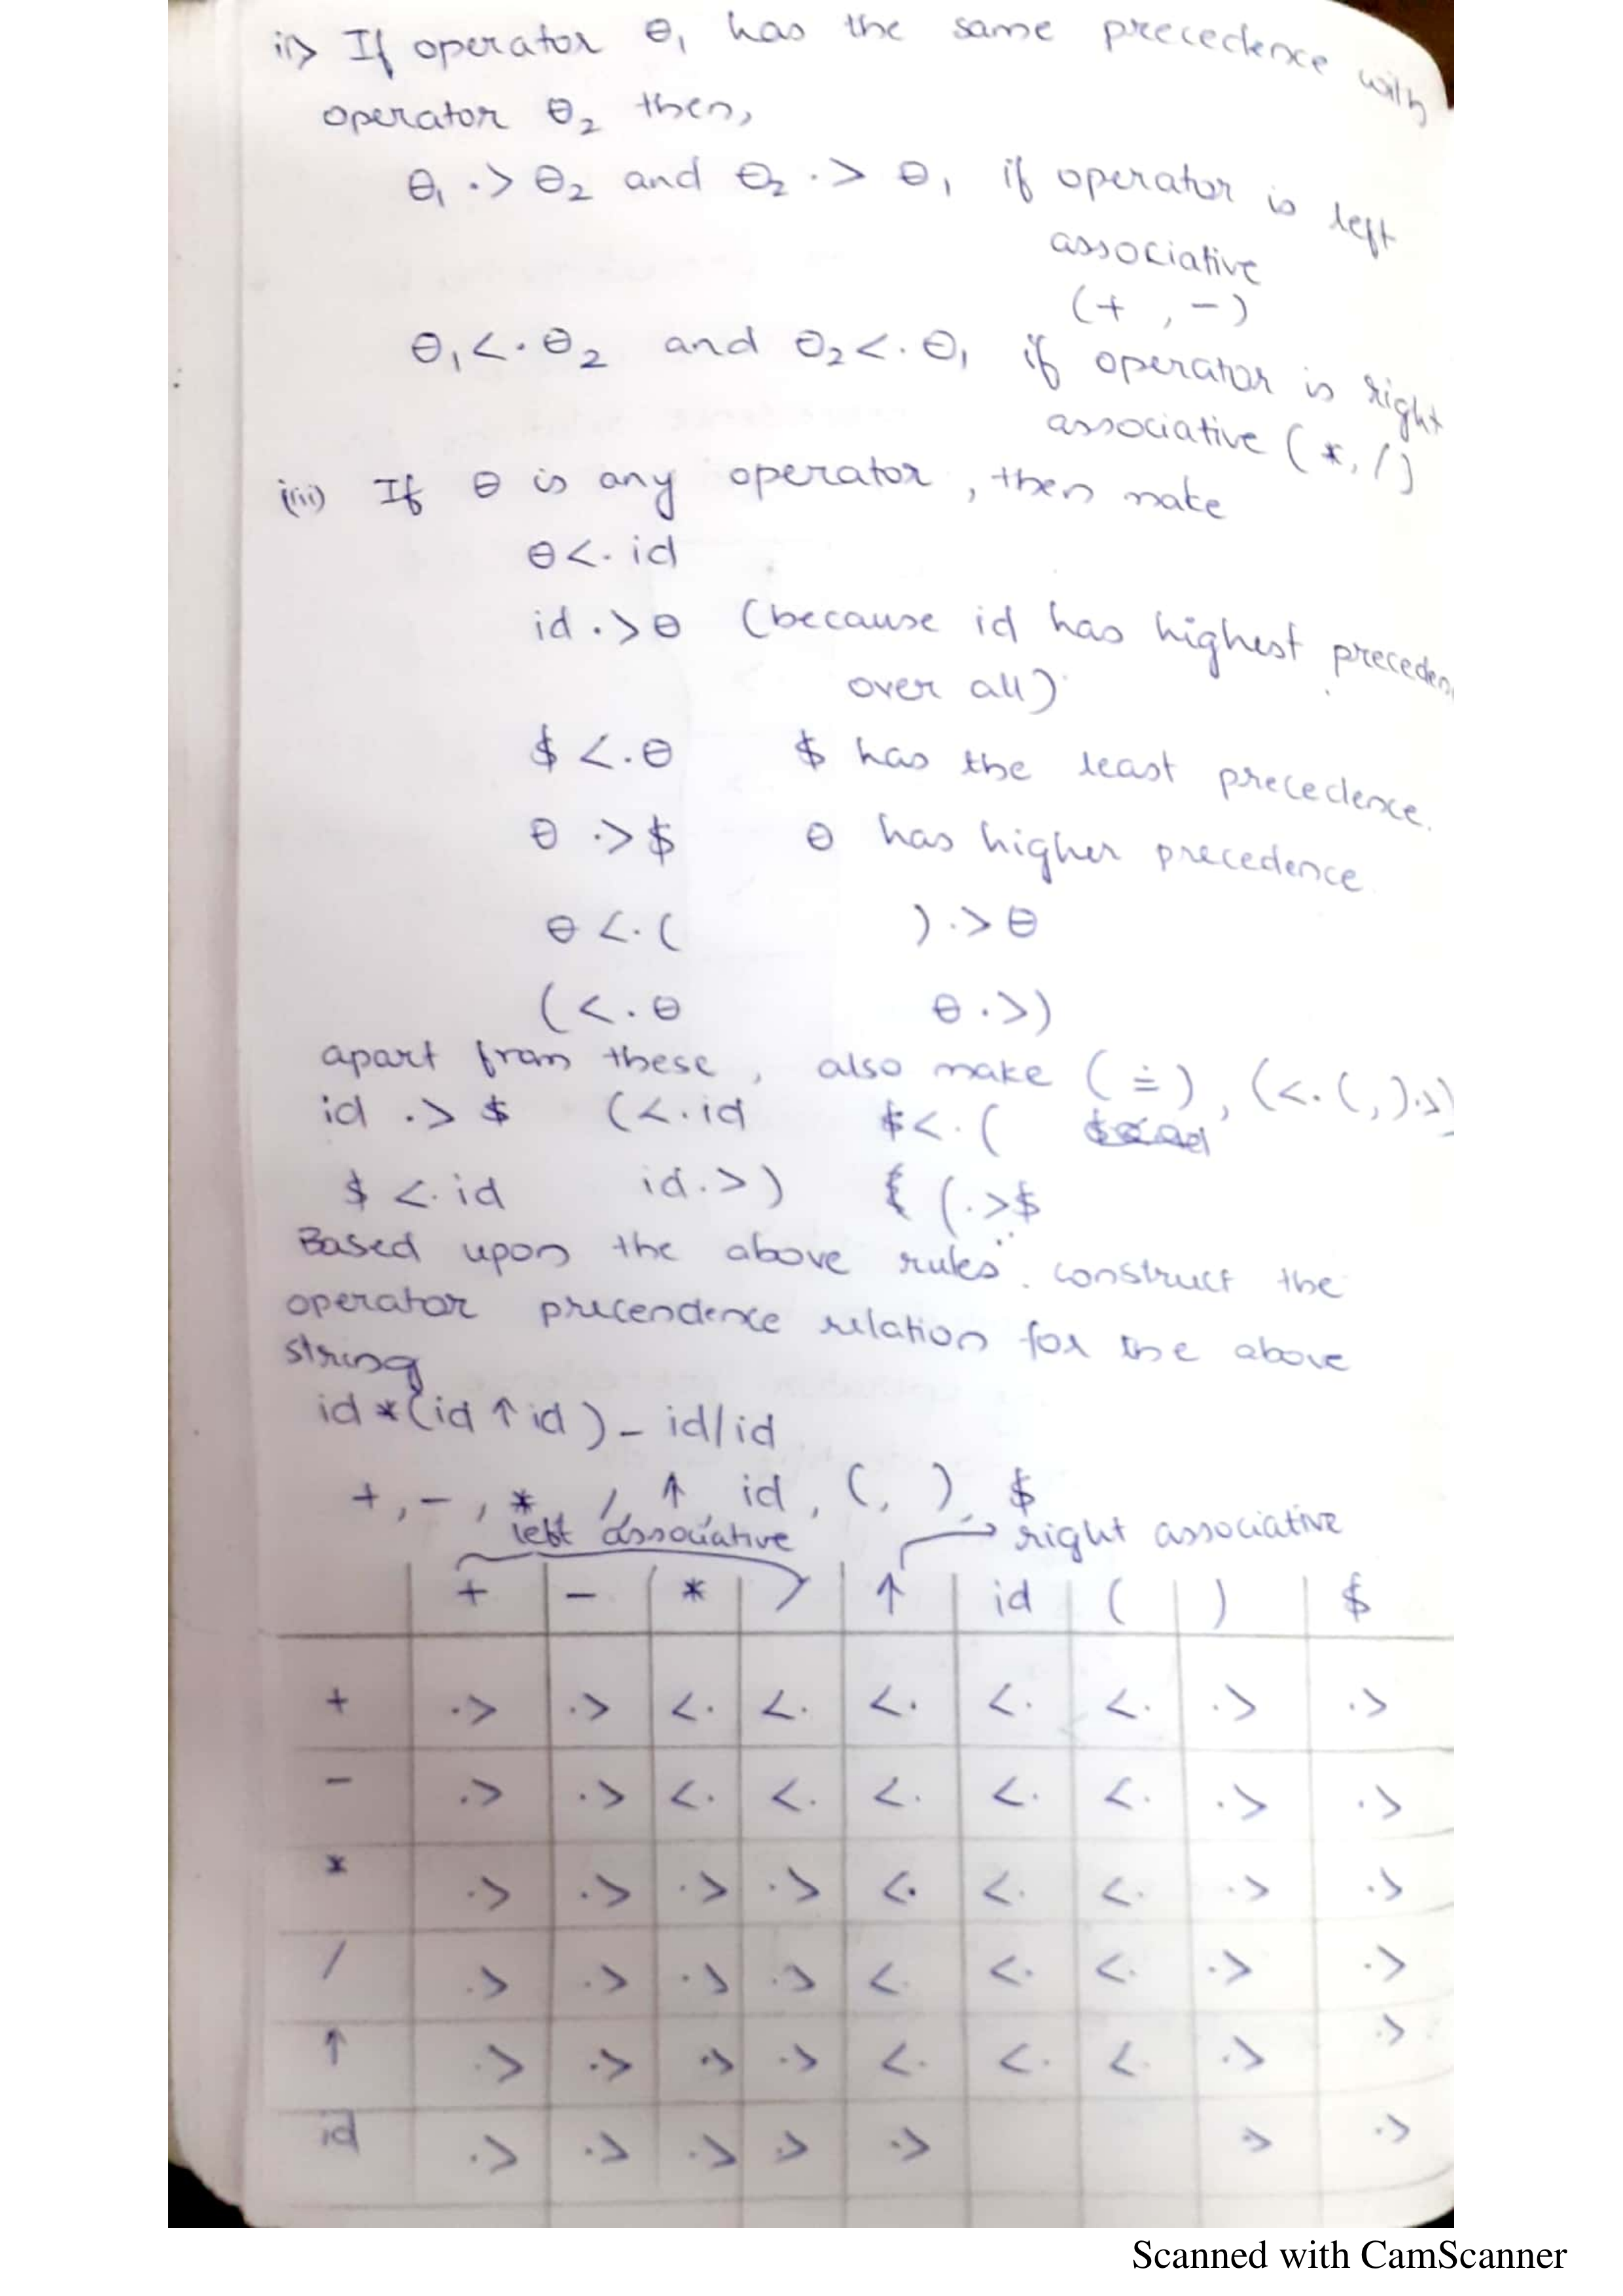 ii) If operator θ₁ has the same precedence with
operator θ₂ then,
θ₁ .> θ₂ and θ₂ .> θ₁ if operator is left
associative
(+ , -)
θ₁ <. θ₂ and θ₂ <. θ₁ if operator is right
associative (*, /)
(iii) If θ is any operator, then make
θ <. id
id .> θ (because id has highest preceden
over all)
$ <. θ $ has the least precedence.
θ .> $ θ has higher precedence
θ <. ( ) .> θ
( <. θ θ .> )
apart from these, also make ( ≐ ), ( <. (, ) .> )
id .> $ ( <. id $ <. (
$ <. id id .> ) ( .> $
Based upon the above rules. construct the
operator precendence relation for the above
string
id * (id ↑ id) - id/id
+, -, *, /, ↑, id, (, ), $
left associative → right associative
+ - * / ↑ id ( ) $
+ .> .> <. <. <. <. <. .> .>
- .> .> <. <. <. <. <. .> .>
* .> .> .> .> <. <. <. .> .>
/ .> .> .> .> <. <. <. .> .>
↑ .> .> .> .> <. <. <. .> .>
id .> .> .> .> .> .> .>
Scanned with CamScanner